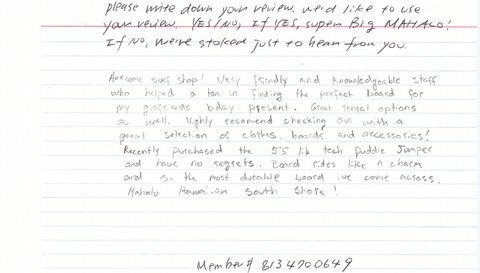 please write down your review. we'd like to use
your review. YES/NO, If YES, super Big MAHALO!
If NO, we're stoked just to hear from you.
Awesome surf shop! Very friendly and knowledgeable staff
who helped a ton in finding the perfect board for
my girlfriends bday present. Great rental options
as well. Highly recomend checking out with a
great selection of clothes, boards and accessories!
Recently purchased the 5'5 lib tech puddle Jumper
and have no regrets. Board rides like a charm
and is the most durable board ive come across.
Mahalo Hawaiian South Shore!
Member# 8134700649